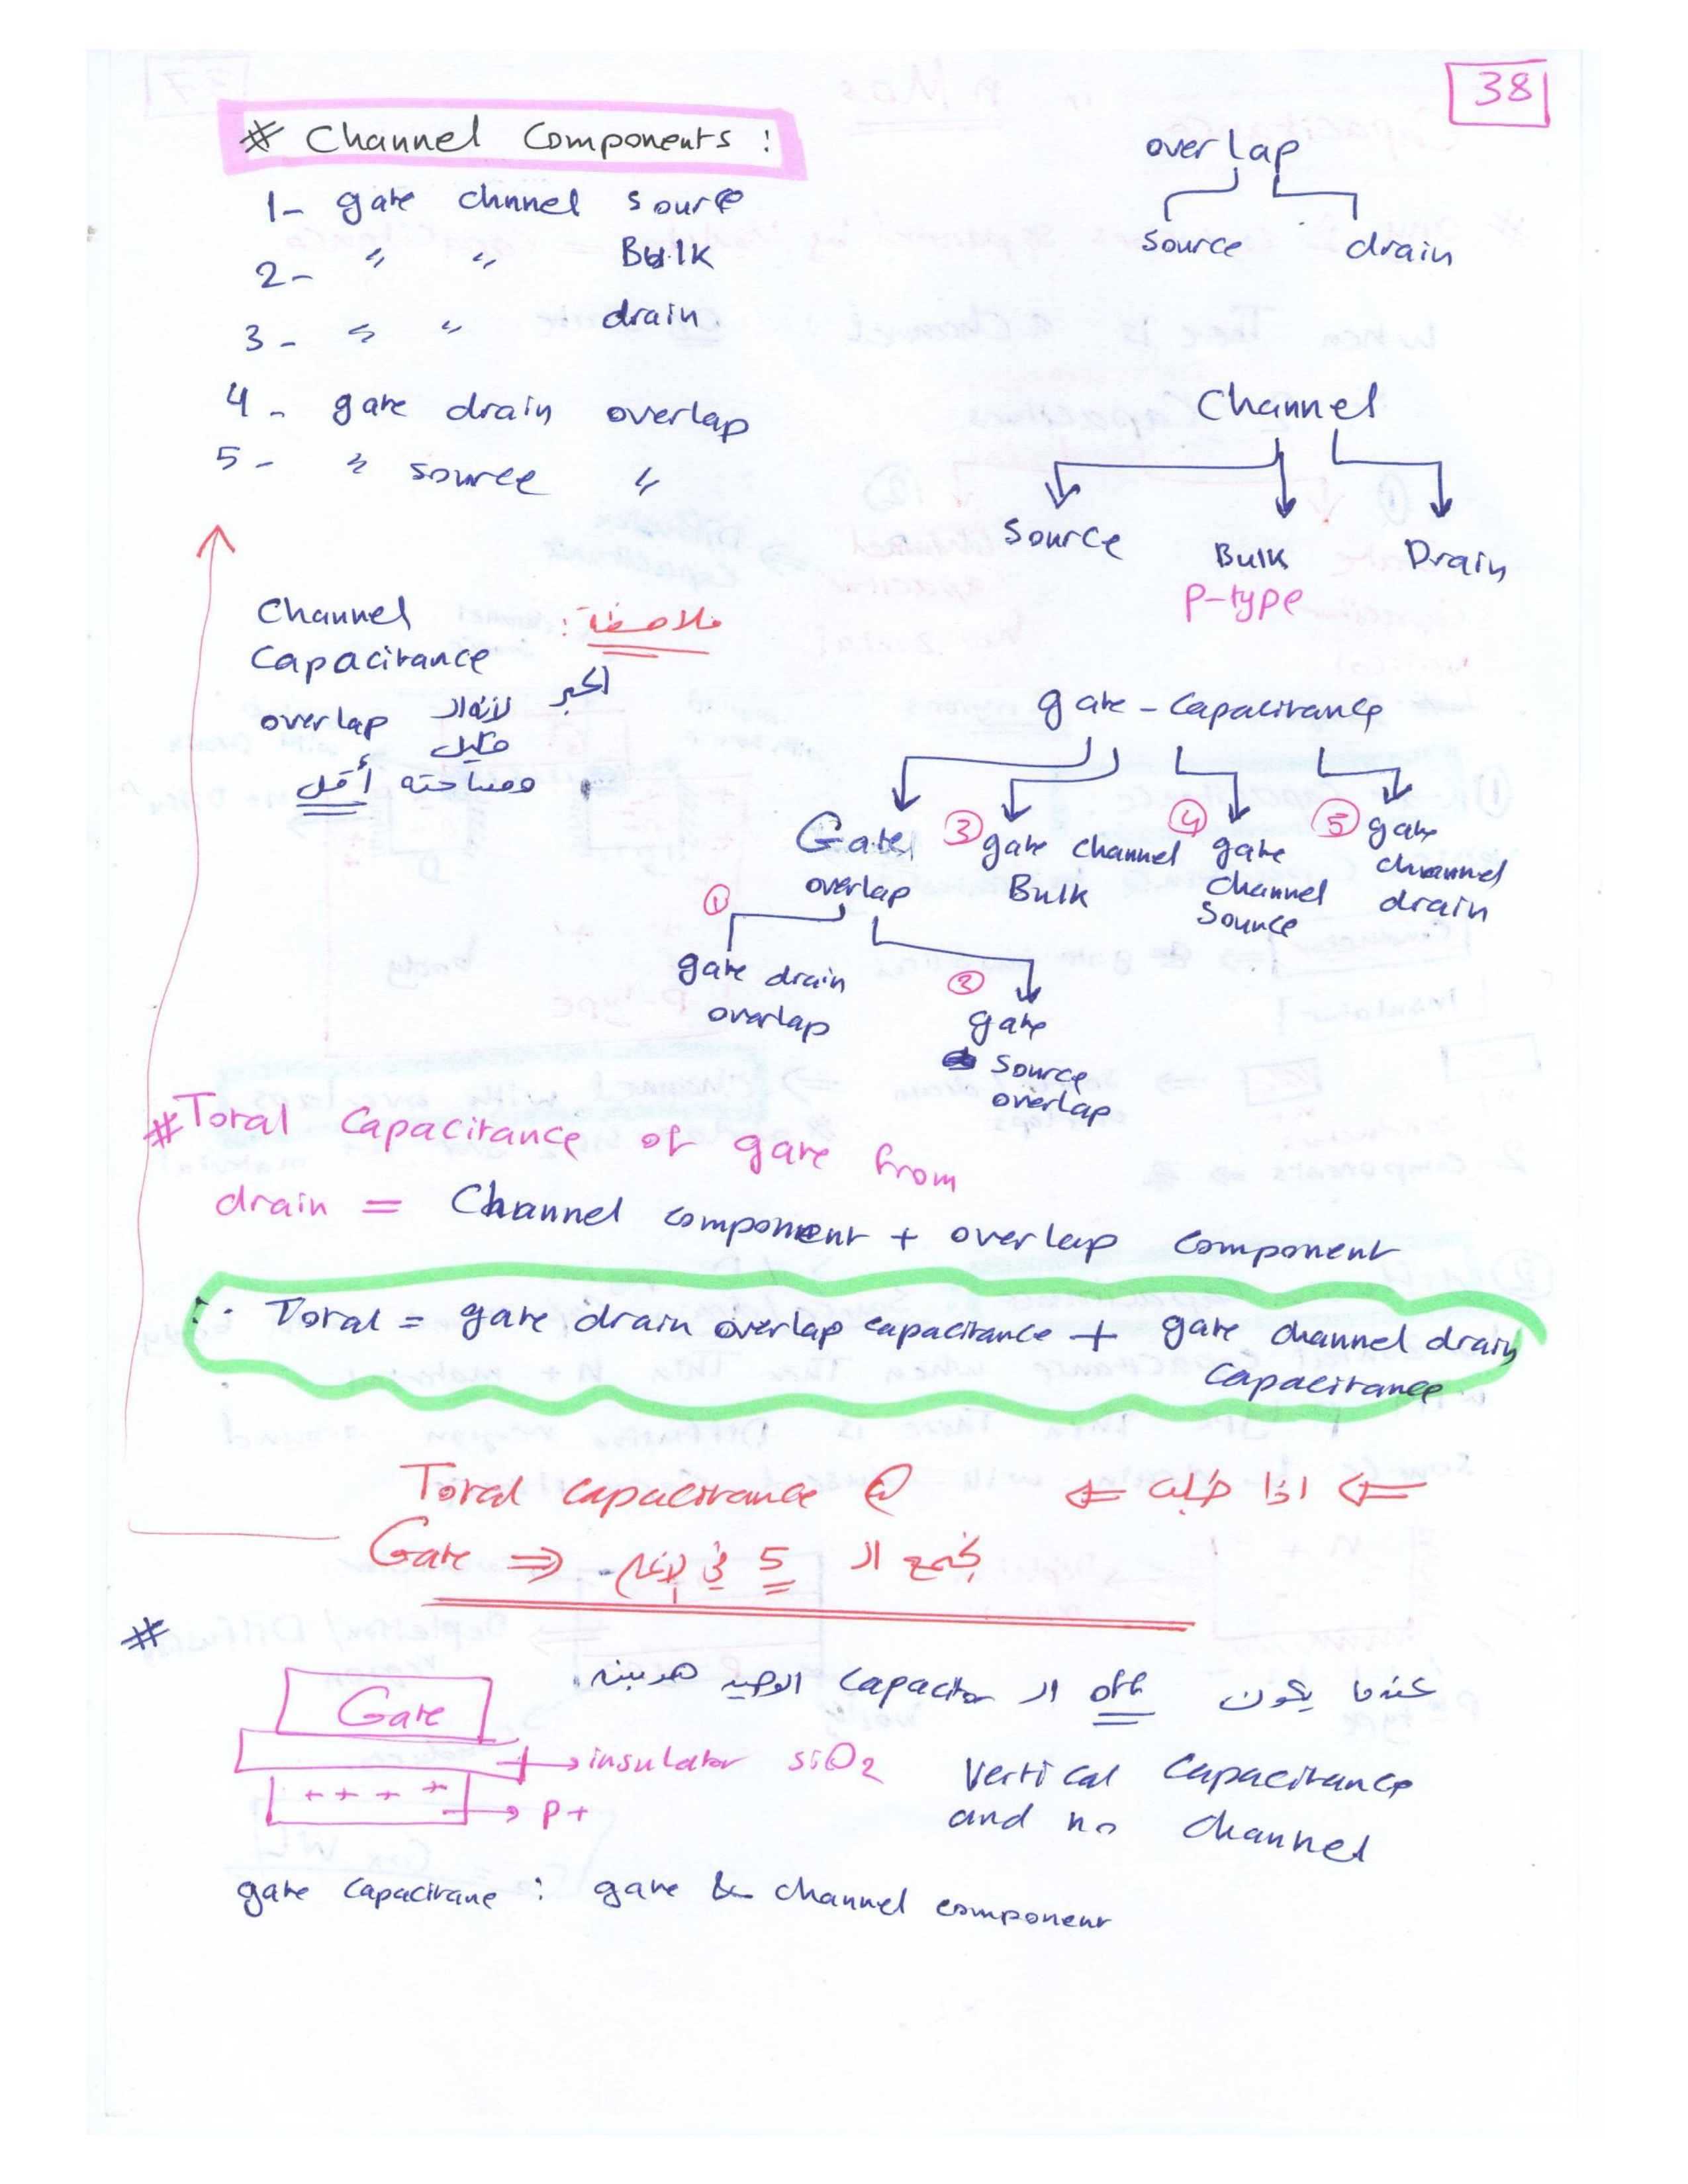 38
# Channel Components :
1- gate chnnel source
2- " " Bulk
3- " " drain
4- gate drain overlap
5- " source "
overlap
source drain
Channel
Source Bulk Drain
P-type
ملاحظة :
Channel
Capacitance
اكبر
overlap لانه ال
قليل
ومساحته أقل
gate - capacitance
Gate overlap
③ gate channel Bulk
④ gate channel source
⑤ gate channel drain
① gate drain overlap
② gate source overlap
# Total Capacitance of gate from
drain = Channel component + overlap component
∴ Total = gate drain overlap capacitance + gate channel drain
Capacitance
⇐ اذا طلب ⇐ Total capacitance @
Gate ⇒ بجمع ال 5 في
#
عندما يكون off ال Capacitor الوحيد
Gate
insulator siO2
+ + + +
p+
Vertical Capacitance
and no channel
gate capacitane : gate & channel component